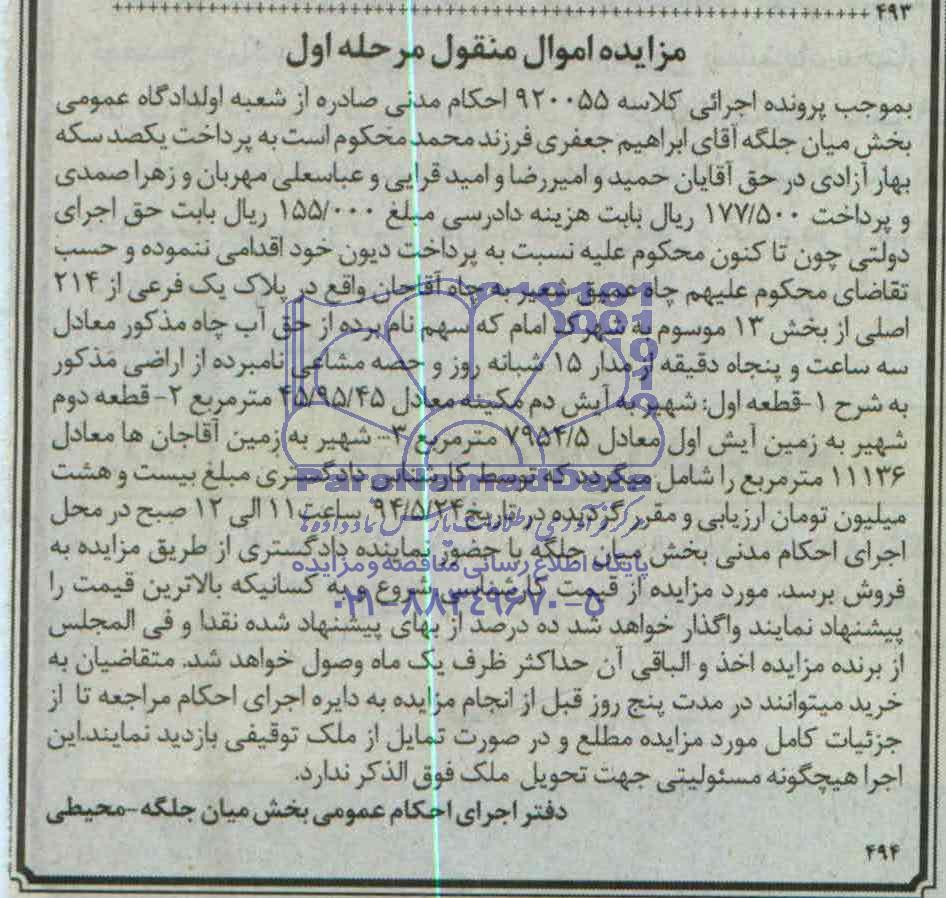 ۴۹۳
مزایده اموال منقول مرحله اول
بموجب پرونده اجرائی کلاسه ۹۲۰۰۵۵ احکام مدنی صادره از شعبه اولدادگاه عمومی
بخش میان جلگه آقای ابراهیم جعفری فرزند محمد محکوم است به پرداخت یکصد سکه
بهار آزادی در حق آقایان حمید و امیررضا و امید قرایی و عباسعلی مهربان و زهرا صمدی
و پرداخت ۱۷۷/۵۰۰ ریال بابت هزینه دادرسی مبلغ ۱۵۵/۰۰۰ ریال بابت حق اجرای
دولتی چون تا کنون محکوم علیه نسبت به پرداخت دیون خود اقدامی ننموده و حسب
تقاضای محکوم علیهم چاه عمیق شعیر به چاه آقاجان واقع در پلاک یک فرعی از ۲۱۴
اصلی از بخش ۱۳ موسوم به شهرک امام که سهم نام برده از حق آب چاه مذکور معادل
سه ساعت و پنجاه دقیقه از مدار ۱۵ شبانه روز و حصه مشاعی نامبرده از اراضی مذکور
به شرح ۱-قطعه اول: شهیر به آیش دم مکینه معادل ۴۵/۹۵/۴۵ مترمربع ۲- قطعه دوم
شهیر به زمین آیش اول معادل ۷۹۵۴/۵ مترمربع ۳- شهیر به زمین آقاجان ها معادل
۱۱۱۳۶ مترمربع را شامل میگردد که توسط کارشناس دادگستری مبلغ بیست و هشت
میلیون تومان ارزیابی و مقرر گردیده در تاریخ ۹۴/۵/۲۴ ساعت ۱۱ الی ۱۲ صبح در محل
اجرای احکام مدنی بخش میان جلگه با حضور نماینده دادگستری از طریق مزایده به
فروش برسد. مورد مزایده از قیمت کارشناسی شروع و به کسانیکه بالاترین قیمت را
پیشنهاد نمایند واگذار خواهد شد ده درصد از بهای پیشنهاد شده نقدا و فی المجلس
از برنده مزایده اخذ و الباقی آن حداکثر ظرف یک ماه وصول خواهد شد. متقاضیان به
خرید میتوانند در مدت پنج روز قبل از انجام مزایده به دایره اجرای احکام مراجعه تا از
جزئیات کامل مورد مزایده مطلع و در صورت تمایل از ملک توقیفی بازدید نمایند.این
اجرا هیچگونه مسئولیتی جهت تحویل ملک فوق الذکر ندارد.
دفتر اجرای احکام عمومی بخش میان جلگه-محیطی
۴۹۴
پایگاه اطلاع رسانی مناقصه و مزایده
۰۲۱-۸۸۳۴۹۶۷۰-۵